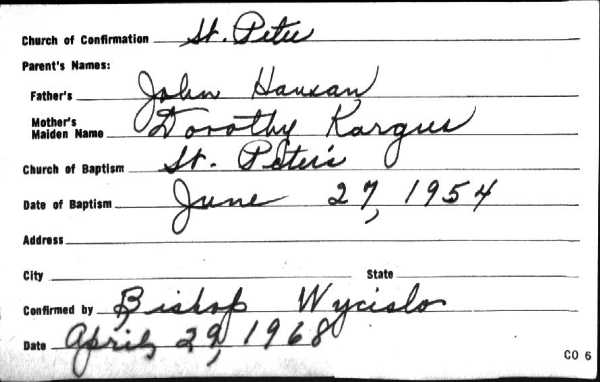 Church of Confirmation St. Peter
Parent's Names:
Father's John Hauxan
Mother's
Maiden Name Dorothy Kargus
Church of Baptism St. Peter's
Date of Baptism June 27, 1954
Address
City State
Confirmed by Bishop Wycislo
Date April 29, 1968
CO 6